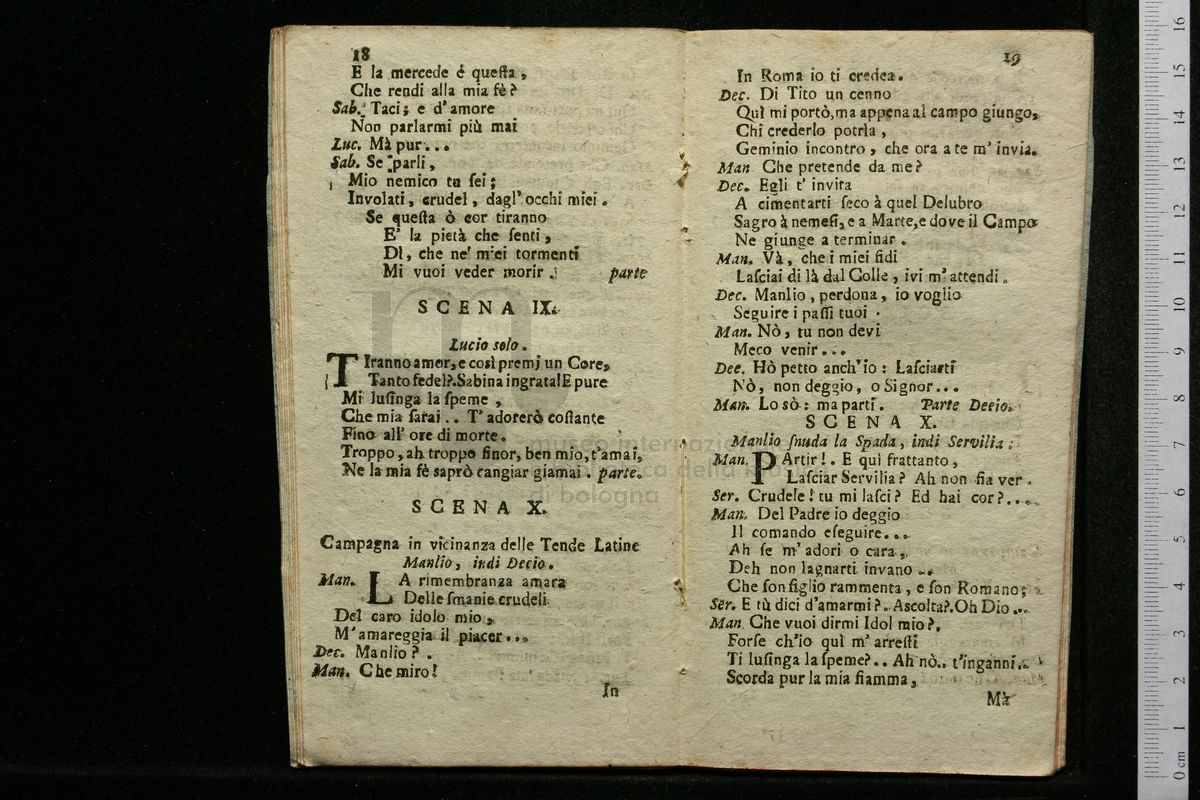 18
E la mercede è queſta ,
Che rendi alla mia fè ?
Sab. Taci ; e d' amore
Non parlarmi più mai
Luc. Mà pur . . .
Sab. Se parli ,
Mio nemico tu ſei ;
Involati , crudel , dagl' occhi miei .
Se queſta ò cor tiranno
E' la pietà che ſenti ,
Dì , che ne' miei tormenti
Mi vuoi veder morir . parte
SCENA IX.
Lucio solo .
TIranno amor , e così premj un Core ,
Tanto fedel ? Sabina ingrata! E pure
Mi luſinga la ſpeme ,
Che mia ſarai . . T' adorerò coſtante
Fino all' ore di morte .
Troppo , ah troppo finor , ben mio , t'amai ,
Ne la mia fè saprò cangiar giamai . parte .
SCENA X.
Campagna in vicinanza delle Tende Latine
Manlio , indi Decio .
Man. LA rimembranza amara
Delle ſmanie crudeli
Del caro idolo mio ,
M' amareggia il piacer . . .
Dec. Manlio ? .
Man. Che miro !
In
19
In Roma io ti credea .
Dec. Di Tito un cenno
Quì mi portò, ma appena al campo giungo ,
Chi crederlo potrìa ,
Geminio incontro , che ora a te m' invia .
Man Che pretende da me ?
Dec. Egli t' invita
A cimentarti ſeco à quel Delubro
Sagro à nemeſi, e a Marte, e dove il Campo
Ne giunge a terminar .
Man. Và , che i miei fidi
Laſciai di là dal Colle , ivi m' attendi .
Dec. Manlio , perdona , io voglio
Seguire i paſſi tuoi .
Man. Nò , tu non devi
Meco venir . . .
Dec. Hò petto anch'io : Laſciarti
Nò , non deggio , o Signor . . .
Man. Lo sò : ma parti . Parte Decio .
SCENA X.
Manlio ſnuda la Spada , indi Servilia .
Man. PArtir ! . E quì frattanto ,
Laſciar Servilia ? Ah non ſia ver .
Ser. Crudele ! tu mi laſci ? Ed hai cor ? . . .
Man. Del Padre io deggio
Il comando eſeguire . . .
Ah ſe m' adori o cara ,
Deh non lagnarti invano . .
Che ſon figlio rammenta , e ſon Romano ;
Ser. E tù dici d'amarmi ? . Aſcolta ? . Oh Dio . . .
Man Che vuoi dirmi Idol mio ? .
Forſe ch'io quì m' arreſti
Ti luſinga la ſpeme ? . . Ah nò . . t'inganni . .
Scorda pur la mia fiamma ,
Mà
museo internazionale
biblioteca della musica
di bologna
0 cm 1 2 3 4 5 6 7 8 9 10 11 12 13 14 15 16